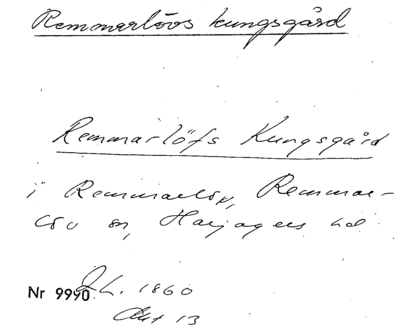 Remmarlövs kungsgård
Remmarlöfs Kungsgård
i Remmarlöv, Remmar-
löv sn, Harjagers hd
Nr 9990. J.L. 1860
Akt 13